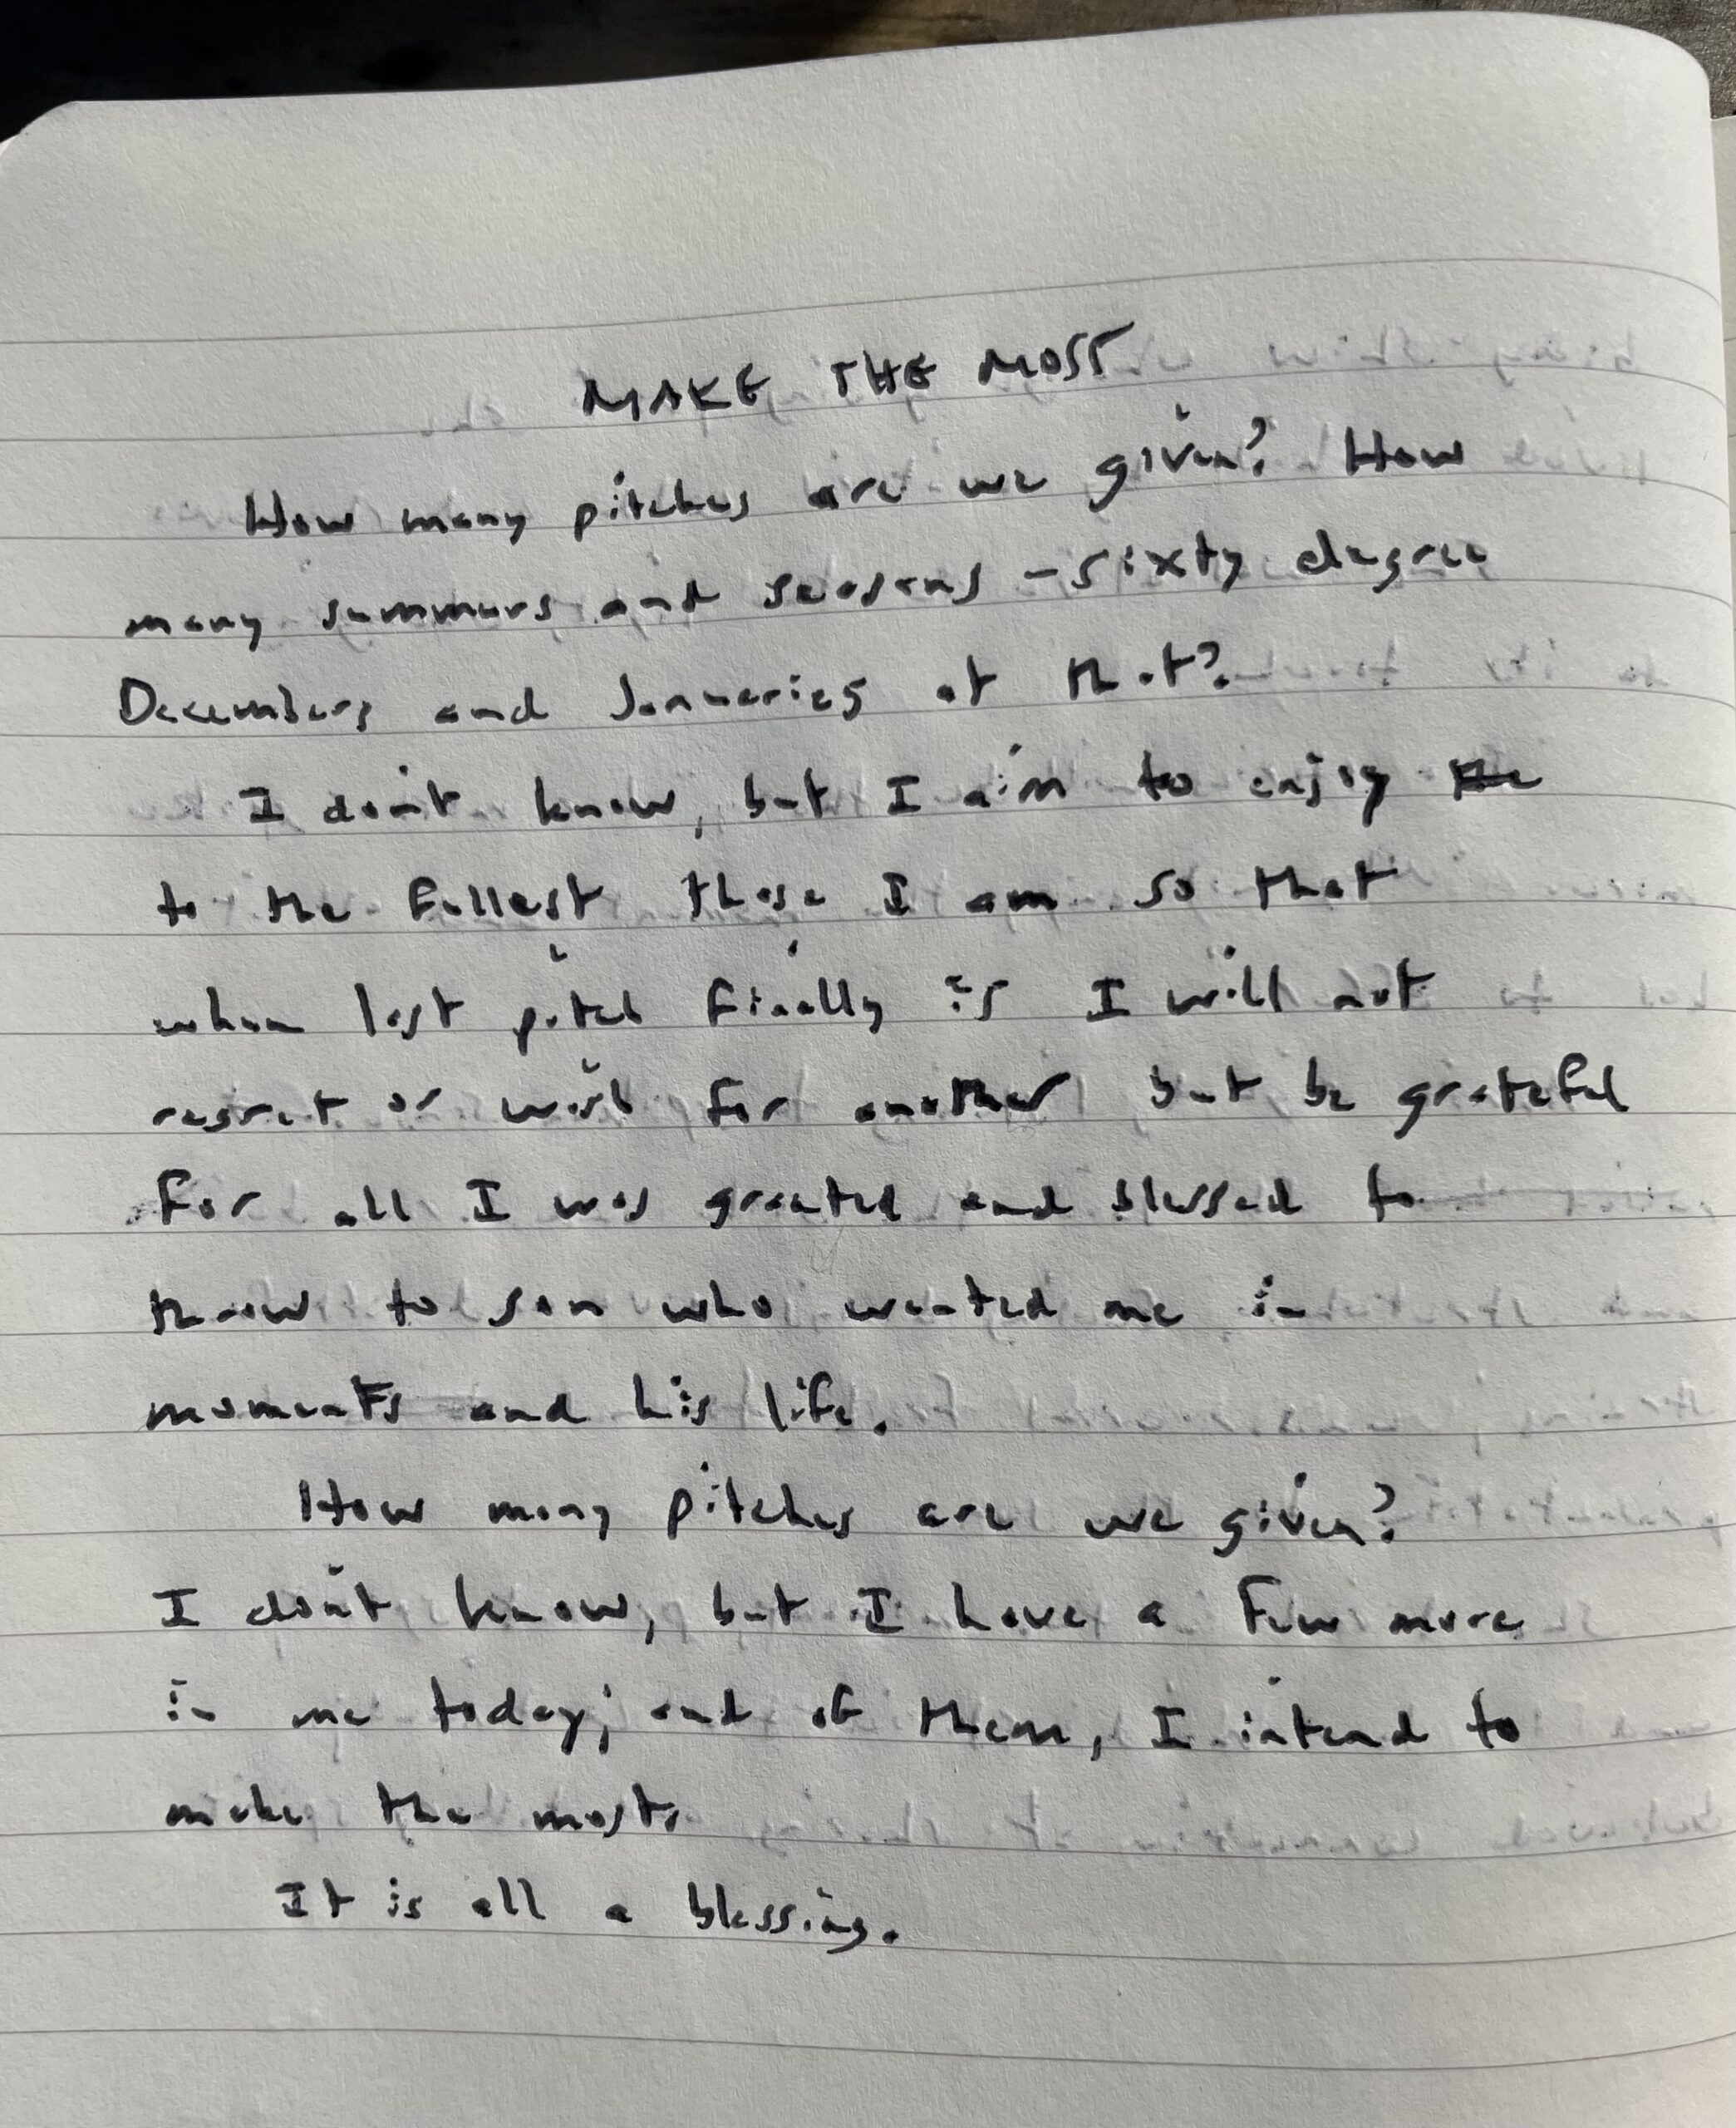 MAKE THE MOST
How many pitches are we given? How
many summers and seasons - sixty degree
Decembers and Januaries at that?
I don't know, but I aim to enjoy
to the fullest those I am so that
when last pitch finally is I will not
regret or wish for another but be grateful
for all I was granted and blessed to
throw to son who wanted me in
moments and his life.
How many pitches are we given?
I don't know, but I have a few more
in me today; and of them, I intend to
make the most.
It is all a blessing.